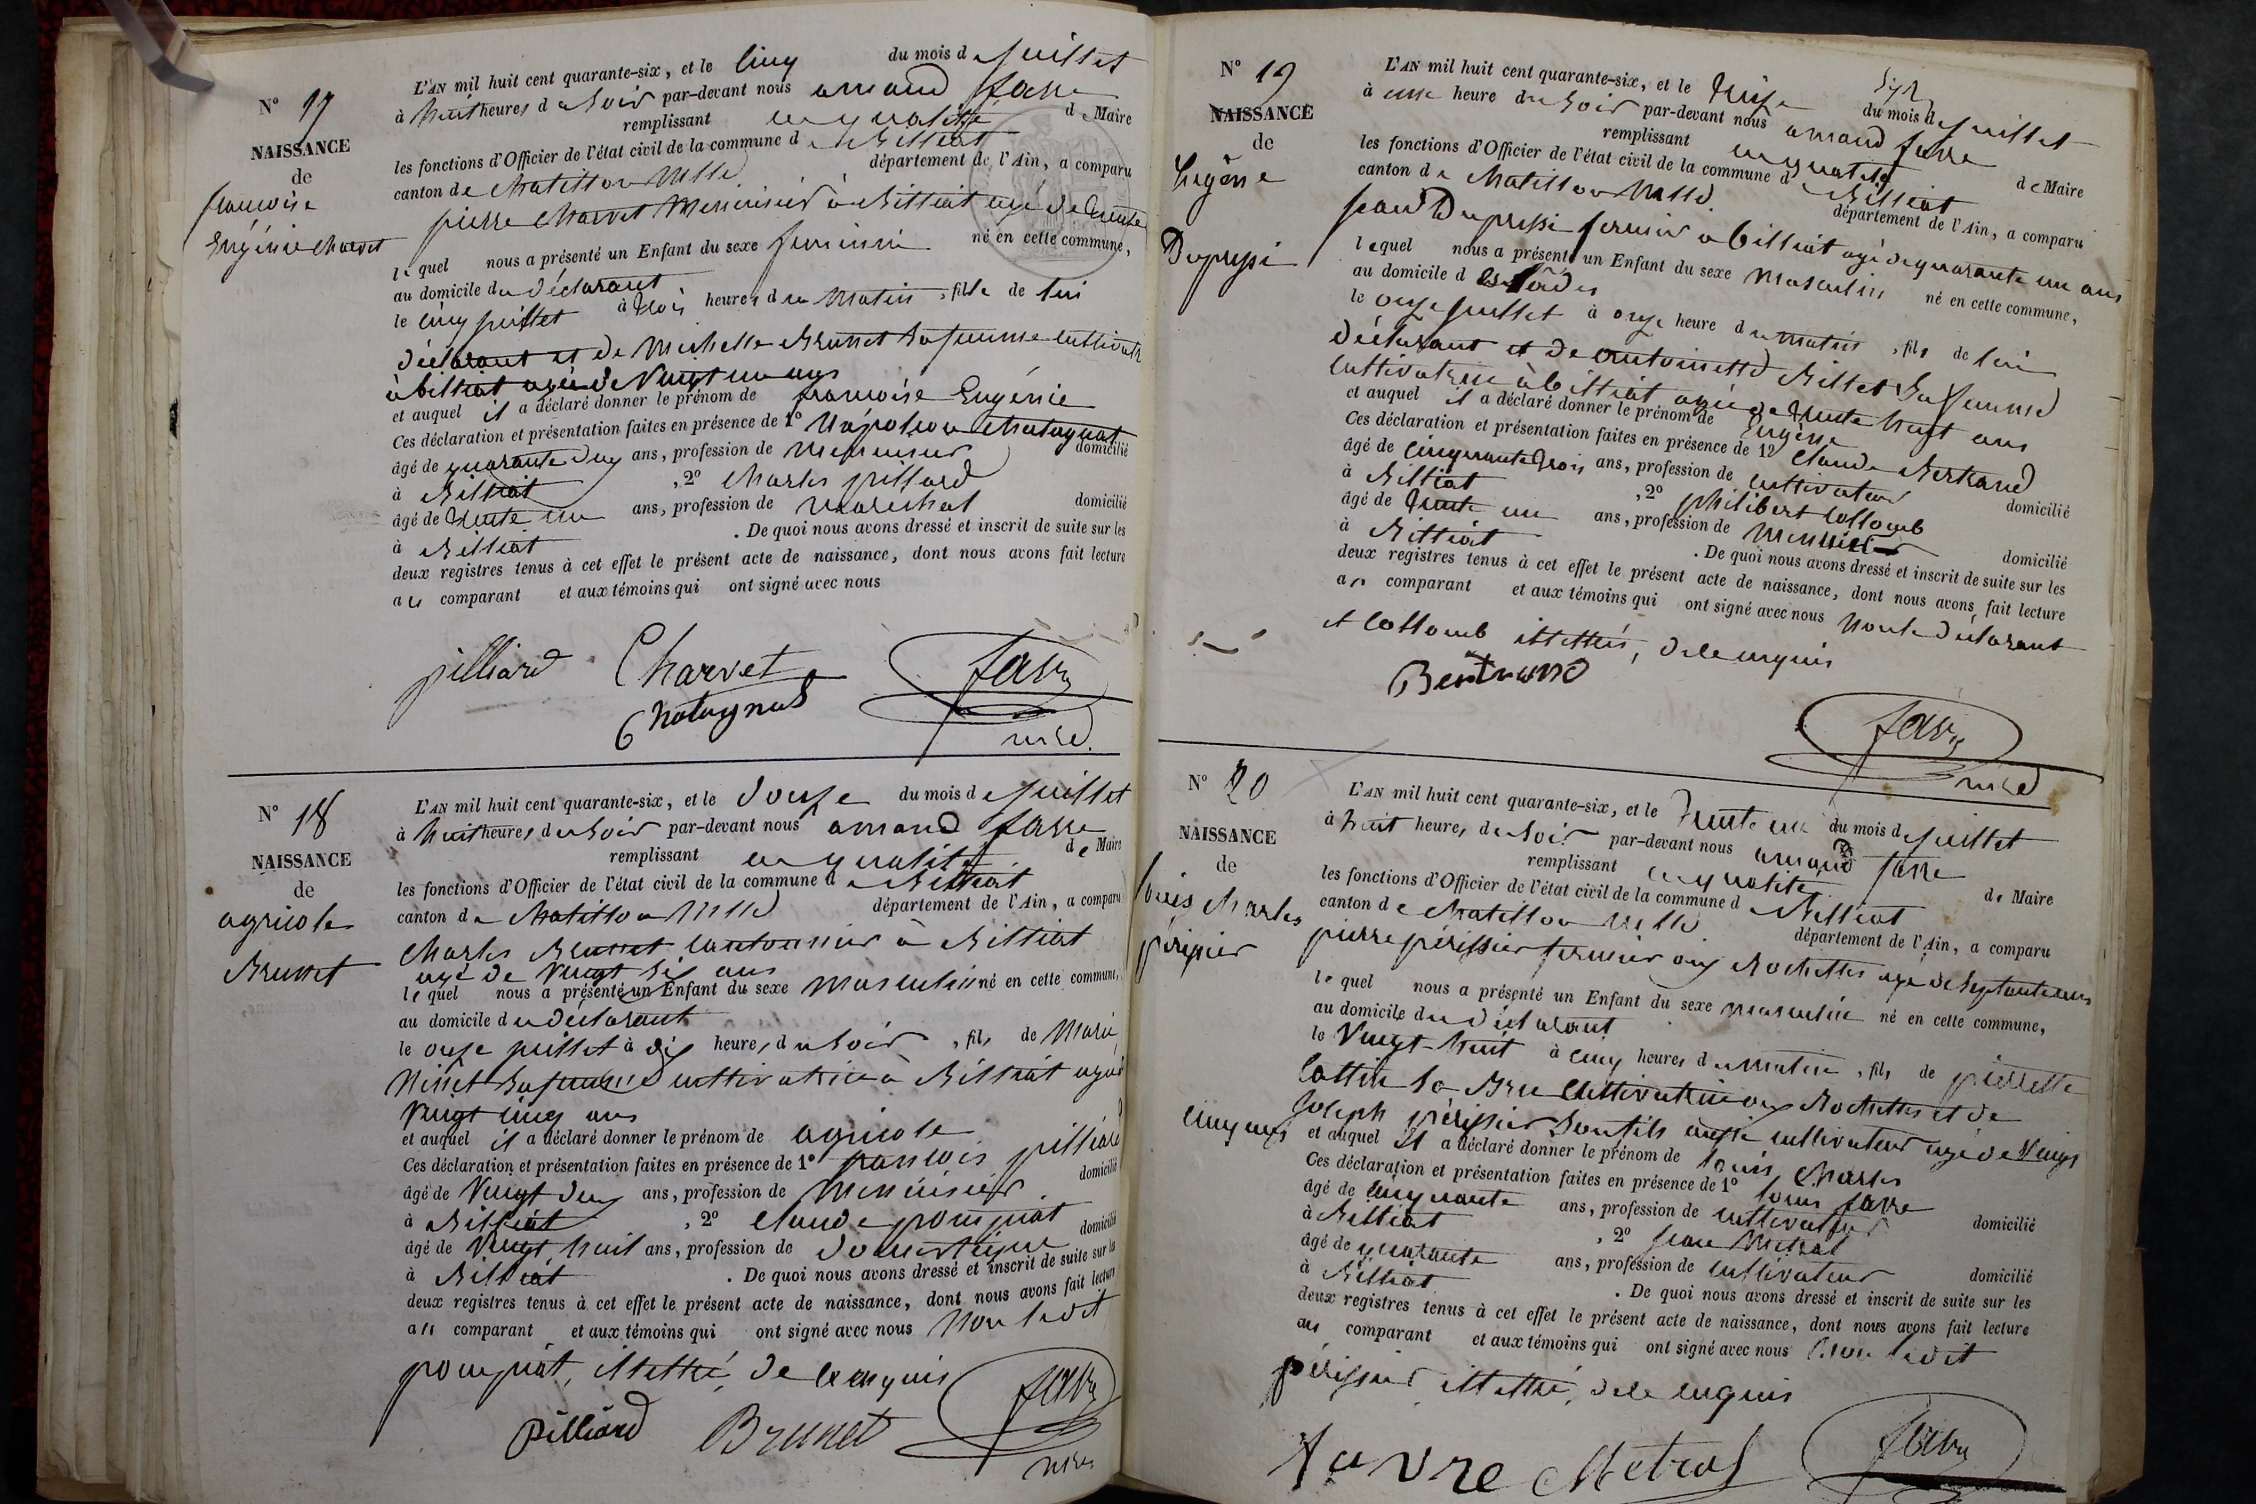 N° 17
NAISSANCE
de
françoise
Eugénie Charvet
L'AN mil huit cent quarante-six, et le Cinq du mois de Juillet
à huit heures du Soir par-devant nous amand favre
remplissant en qualité de Maire
les fonctions d'Officier de l'état civil de la commune de Billiat
canton de Chatillon département de l'Ain, a comparu
pierre Charvet Menuisier à Billiat agé de trente
lequel nous a présenté un Enfant du sexe feminin né en cette commune,
au domicile du déclarant
le cinq juillet à trois heures du Matin, fille de lui
déclarant et de Michelle Brunet Sa femme cultivatr
à billiat agée de Vingt un ans
et auquel il a déclaré donner le prénom de françoise Eugénie
Ces déclaration et présentation faites en présence de 1° Napoléon Chatagnat
âgé de quarante deux ans, profession de Menuisier domicilié
à Billiat, 2° Charles pilliard
âgé de trente un ans, profession de marechal domicilié
à Billiat. De quoi nous avons dressé et inscrit de suite sur les
deux registres tenus à cet effet le présent acte de naissance, dont nous avons fait lecture
au comparant et aux témoins qui ont signé avec nous
pilliard Charvet favre
Chatagnat
N° 18
NAISSANCE
de
agricole
Brunet
L'AN mil huit cent quarante-six, et le douze du mois de Juillet
à huit heures du Soir par-devant nous amand favre
remplissant en qualité de Maire
les fonctions d'Officier de l'état civil de la commune de Billiat
canton de Chatillon département de l'Ain, a comparu
Charles Brunet Cantonnier à Billiat
agé de Vingt Six ans
lequel nous a présenté un Enfant du sexe masculin né en cette commune,
au domicile du déclarant
le onze juillet à dix heures du Soir, fils de Marie
Sa femme cultivatrice à Billiat agée
Vingt cinq ans
et auquel il a déclaré donner le prénom de agricole
Ces déclaration et présentation faites en présence de 1° françois pilliard
âgé de Vingt deux ans, profession de Menuisier domicilié
à Billiat, 2° Claude pompiat
âgé de Vingt huit ans, profession de domestique domicilié
à Billiat. De quoi nous avons dressé et inscrit de suite sur les
deux registres tenus à cet effet le présent acte de naissance, dont nous avons fait lecture
au comparant et aux témoins qui ont signé avec nous Non ledit
pompiat, illettré, de ce enquis
pilliard Brunet favre
N° 19
NAISSANCE
de
Eugène
Dupressi
L'AN mil huit cent quarante-six, et le treize du mois de Juillet
à une heure du Soir par-devant nous amand favre
remplissant en qualité de Maire
les fonctions d'Officier de l'état civil de la commune de Billiat
canton de Chatillon département de l'Ain, a comparu
Dupressi fermier à billiat agé de quarante un ans
lequel nous a présenté un Enfant du sexe Masculin né en cette commune,
au domicile d
le onze juillet à onze heure du matin, fils de lui
déclarant et de antoinette Billet Sa femme
cultivatrice à billiat agée de trente huit ans
et auquel il a déclaré donner le prénom de Eugène
Ces déclaration et présentation faites en présence de 1° Claude Bertrand
âgé de cinquante trois ans, profession de cultivateur domicilié
à Billiat, 2° philibert Collomb
âgé de trente un ans, profession de Menuisier domicilié
à Billiat. De quoi nous avons dressé et inscrit de suite sur les
deux registres tenus à cet effet le présent acte de naissance, dont nous avons fait lecture
au comparant et aux témoins qui ont signé avec nous Non le déclarant
et Collomb illettrés, de ce enquis
Bertrand
favre
N° 20
NAISSANCE
de
louis Charles
périssier
L'AN mil huit cent quarante-six, et le trente un du mois de Juillet
à huit heures du Soir par-devant nous amand favre
remplissant en qualité de Maire
les fonctions d'Officier de l'état civil de la commune de Billiat
canton de Chatillon département de l'Ain, a comparu
pierre périssier fermier aux Rochettes agé de Septante ans
lequel nous a présenté un Enfant du sexe masculin né en cette commune,
au domicile du déclarant
le Vingt-huit à cinq heures du matin, fils de pierrette
Cottin Sa Bru Cultivatrice aux Rochettes et de
Joseph périssier Son fils aussi cultivateur agé de Vingt
cinq ans
et auquel il a déclaré donner le prénom de louis Charles
Ces déclaration et présentation faites en présence de 1° louis favre
âgé de cinquante ans, profession de cultivateur domicilié
à Billiat, 2° Jean Métral
âgé de quarante ans, profession de cultivateur domicilié
à Billiat. De quoi nous avons dressé et inscrit de suite sur les
deux registres tenus à cet effet le présent acte de naissance, dont nous avons fait lecture
au comparant et aux témoins qui ont signé avec nous Non ledit
périssier, illettré, de ce enquis
favre Metral favre